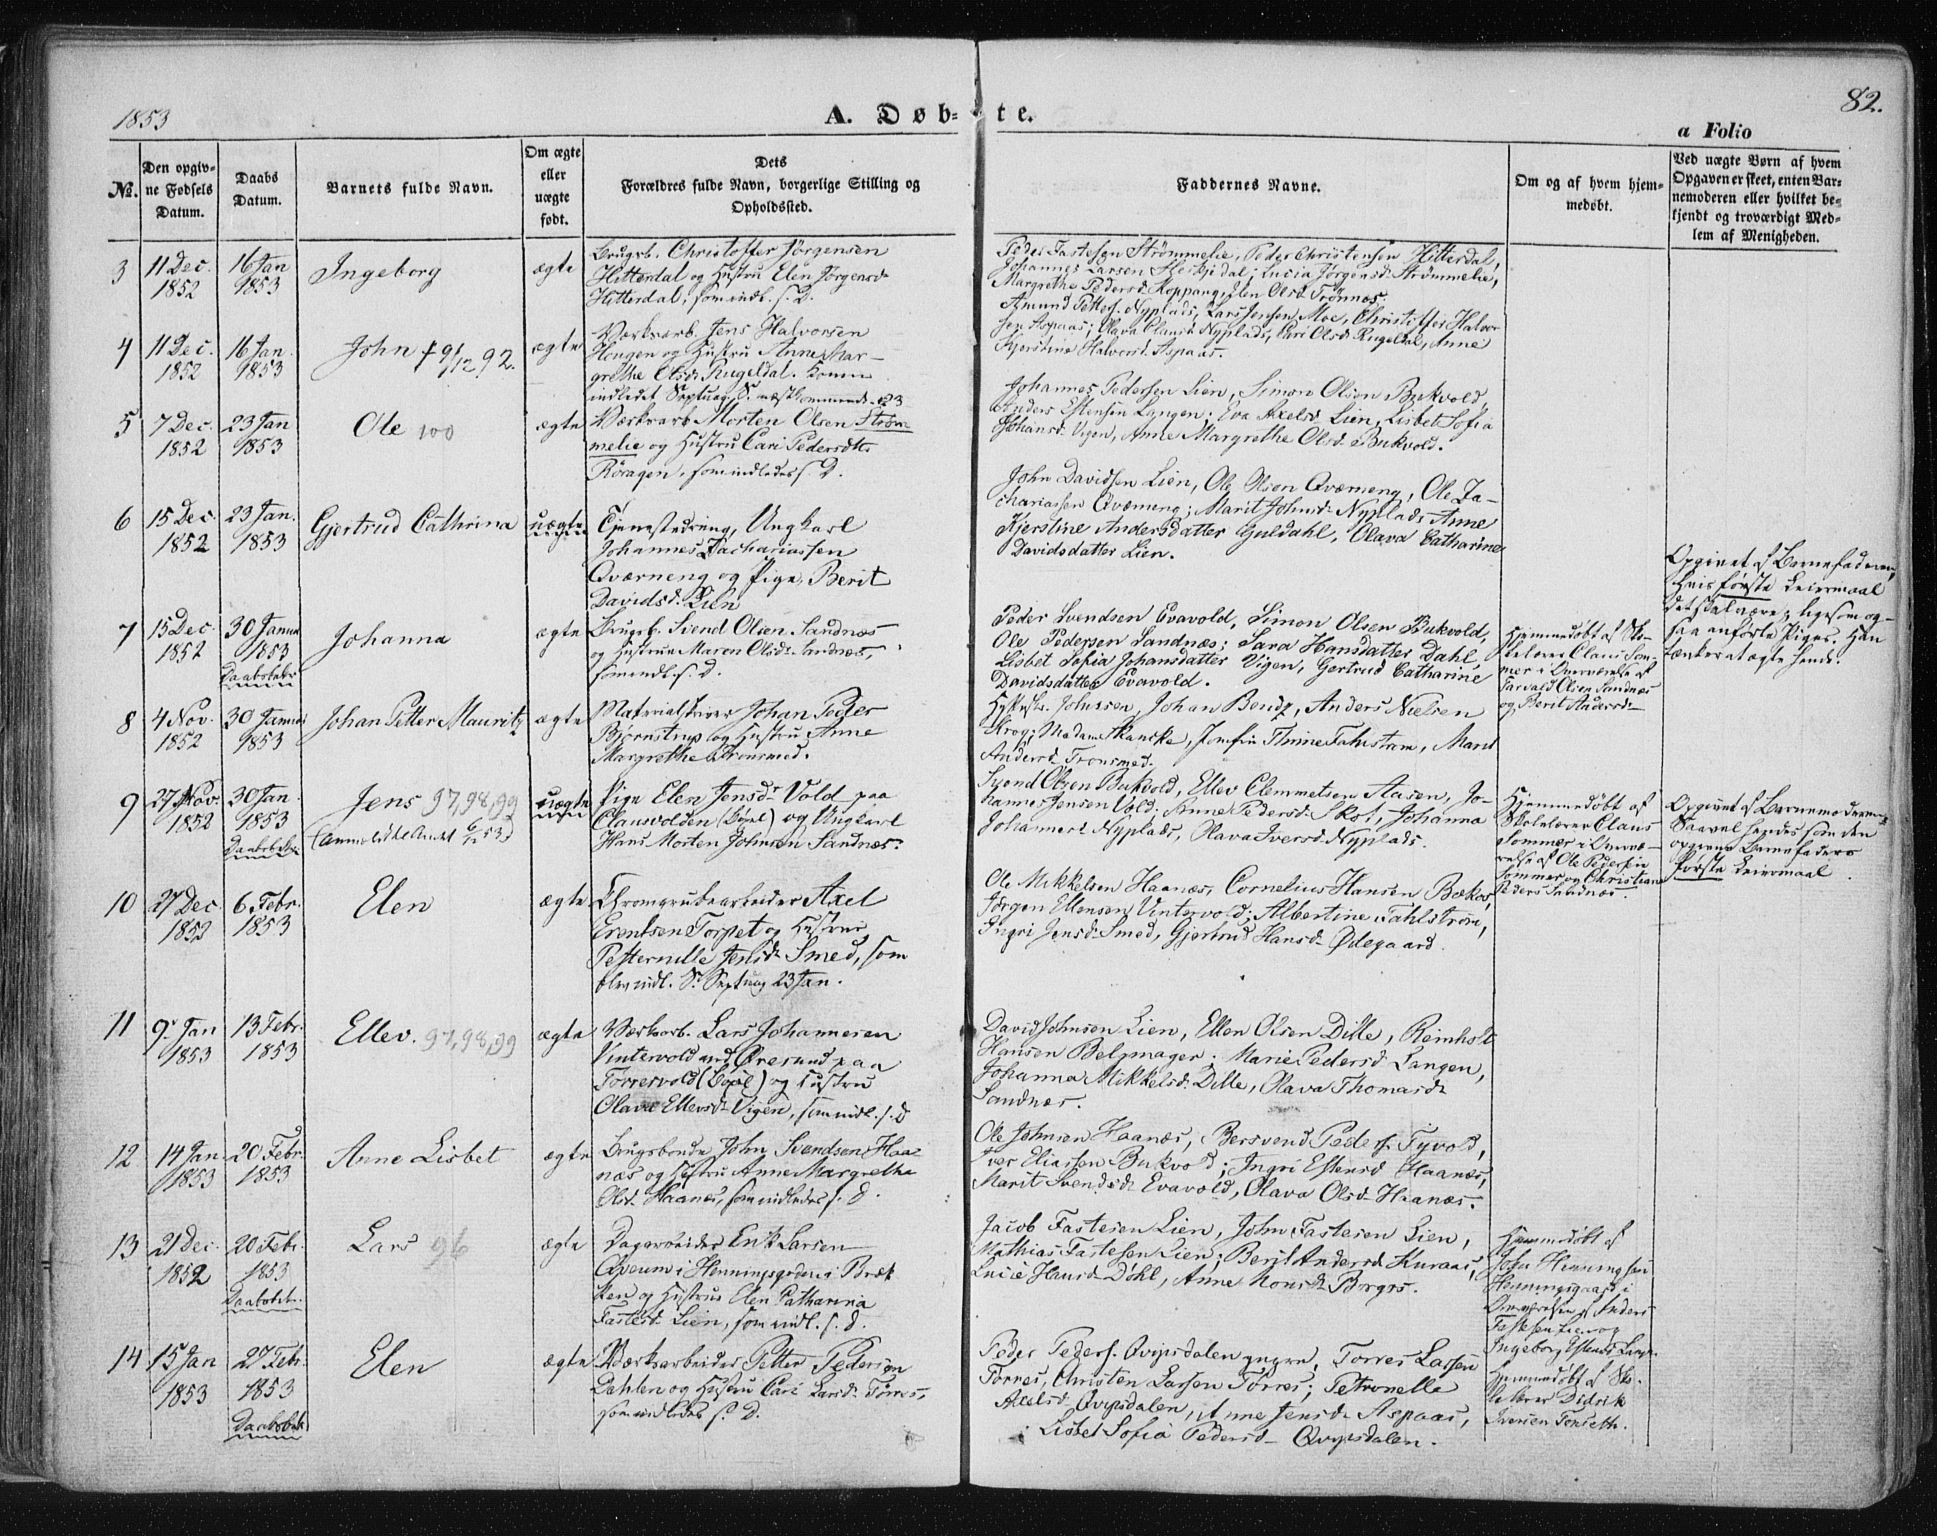 1853
A. Døb-te.
82.
a Folio
No.
Den opgiv-
ne Fødsels
Datum.
Daabs
Datum.
Barnets fulde Navn.
Om ægte
eller
uægte
født.
Dets
Forældres fulde Navn, borgerlige Stilling og
Opholdssted.
Faddernes Navne.
Om og af hvem hjem-
medøbt.
Ved uægte Børn af hvem
Opgaven er skeet, enten Bar-
nemoderen eller hvilket be-
kjendt og troværdigt Med-
lem af Menigheden.
3
11 Dec.
1852
16 Jan
1853
Ingeborg
ægte
Brugsb. Christoffer Jørgensen
Hitterdal og Hustru Elen Jørgensd.
Hitterdal, som indl. s. D.
Peder Fastesen Strømmelie, Peder Christensen Hitterdal,
Johannes Larsen Herkjedal; Lucia Jørgensd. Strømmelie,
Margrethe Pedersd. Koppang, Elen Olsd. Trønnæs.
4
11 Dec.
1852
16 Jan.
1853
John † 9/12 92.
ægte
Værksarb. Jens Halvorsen
Hougen og Hustru Anne Mar-
grethe Olsd. Rugeldal. Kone
indledet Septuag. S. næstkommende 23
Amund Petters. Nyplads, Lars Jensen Moe, Christoffer Halvor-
sen Aspaas; Olava Clausd. Nyplads, Cari Olsd. Rugeldal, Anne
Kjerstine Halvorsd. Aspaas.
5
7 Dec.
1852
23 Jan
1853
Ole 100
ægte
Værksarb. Morten Olsen Strøm-
melie og Hustru Cari Pedersdtr.
Røragen, som indledes s. D.
Johannes Pedersen Lien, Simon Olsen Bukvold
Anders Estensen Langen; Eva Axelsd. Lien, Lisbet Sofia
Johansd. Vigen, Anne Margrethe Olsd. Bukvold.
6
15 Dec.
1852
23 Jan.
1853
Gjertrud Cathrina
uægte
Tjenestedreng, Ungkarl
Johannes Zachariassen
Qværneng og Pige, Berit
Davidsd. Lien
John Davidsen Lien, Ole Olsen Qværneng, Ole Za-
chariassen Qværneng; Marit Johnsd. Nyplads, Anne
Kjerstine Andersdatter Guldahl, Olava Catharine
Davidsdatter Lien.
Opgivet af Barnefaderen,
hvis første Leiermaal
det skal være; ligesom og-
saa anførte Piges. Han
tænker at ægte hende.
7
15 Dec.
1852
30 Januar
1853
Daabsbekr.
Johanna
ægte
Brugsb. Svend Olsen Sandnæs
og Hustru Maren Olsdr. Sandnæs,
som indl. s. D.
Peder Svendsen Evavold, Simon Olsen Bukvold,
Ole Pedersen Sandnæs; Sara Hansdatter Dahl
Lisbet Sofia Johansdatter Vigen, Gertrud Catharine
Davidsdatter Evavold.
Hjemmedøbt af Sko-
lelærer Claus Som-
mer i Overværelse af
Tarvald Olsen Sandnæs
og Berit Andersd.
8
4 Nov.
1852
30 Januar
1853
Johan Petter Mauritz
ægte
Materialskriver Johan Peder
Bjørnstrup og Hustru Anne
Margrethe Tronsmed.
Johnsen, Johan Bendz, Anders Nielsen
Krog; Madam Skancke, Jomfru Thrine Fahlstrøm, Marit
Andersd. Tronsmed.
9
27 Nov.
1852
30 Jan.
1853
Daabsbekr.
Jens 97,98,99
uægte
Pige Elen Jensdr. Vold paa
Clausvolden (Døpl) og Ungkarl
Hans Morten Johnsen Sandnæs.
Svend Olsen Bukvold, Ellev Clemmetsen Aasen, Jo-
hannes Jensen Vold; Anne Pedersd. Skot, Johanna
Johannesd. Nyplads, Olava Iversd. Nyplads.
Hjemmedøbt af
Skolelærer Claus
Sommer i Overvæ-
relse af Ole Pedersen
Sommer og Christiane
Peders Sandnæs.
Opgivet af Barnemoderen.
Saavel hendes som den
opgivne Barnefaders
første Leiermaal.
10
27 Dec.
1852
6 Febr.
1853
Elen
ægte
Chromgrubearbeider Axel
Erentsen Torpet og Hustru
Petternille Jensd. Smed, som
blev indl. S. Septuag 23 Jan.
Ole Mikkelsen Haanæs, Cornelius Hansen Bækos,
Jørgen Ellensen Vintervold; Albertine Fahlstrøm,
Ingri Jensd. Smed, Gjertrud Hansd. Ødegaard.
11
9. Jan
1853
13 Febr.
1853
Ellev. 97,98,99
ægte
Værksarb. Lars Johannesen
Vintervold ved Øresund paa
Torresvold (Døpl) og Hustru
Olava Ellevsd. Vigen, som indl. s. D
David Johnsen Lien, Ellen Olsen Dille, Reinholt
Hansen Belgmager. Marie Pedersd. Langen,
Johanna Mikkelsd. Dille, Olava Thomasd.
Sandnæs.
12
14 Jan
1853
20 Febr
1853
Anne Lisbet
ægte
Brugsbonde John Svendsen Haa-
næs og Hustru Anne Margrethe
Olsd. Haanæs, som indledes s. D.
Ole Johnsen Haanæs, Bersvend Peders. Tyvold,
Iver Eliassen Bukvold; Ingri Estensd. Haanæs,
Marit Svendsd. Evavold, Olava Olsd. Haanæs.
13
21 Dec.
1852
20 Febr.
1853
Daabsbek.
Lars 96
ægte
Dagarbeider Erik Larsen
Qverum i Henningsgaarden i Bræk-
ken og Hustru Elen Catharina
Fastesd. Lien, som indl. s. D.
Jacob Fastesen Lien, John Fastesen Lien,
Mathias Fastesen Lien; Berit Andersd. Kuraas,
Lucie Hansd. Døhl, Anne Monsd. Borgos.
Hjemmedøbt af
John Henningsen
Henningsgaard i
Overværelse af Anders
Fastesen Lien og
Ingeborg Estensd.
14
15 Jan
1853
27 Febr.
1853
Daabsbek.
Elen
ægte
Værksarbeider Petter Pedersen
Dahlen og Hustru Cari Larsd. Torres,
som indledes s. D.
Peder Peders. Qvipsdalen yngre, Torres Larsen
Torres, Christen Larsen Torres; Petronelle
Axelsd. Qvipsdalen, Anne Jensd. Aspaas,
Lisbet Sofia Pedersd. Qvipsdalen.
Hjemmedøbt af Sko-
lelærer Didrik
Iversen Tonseth.